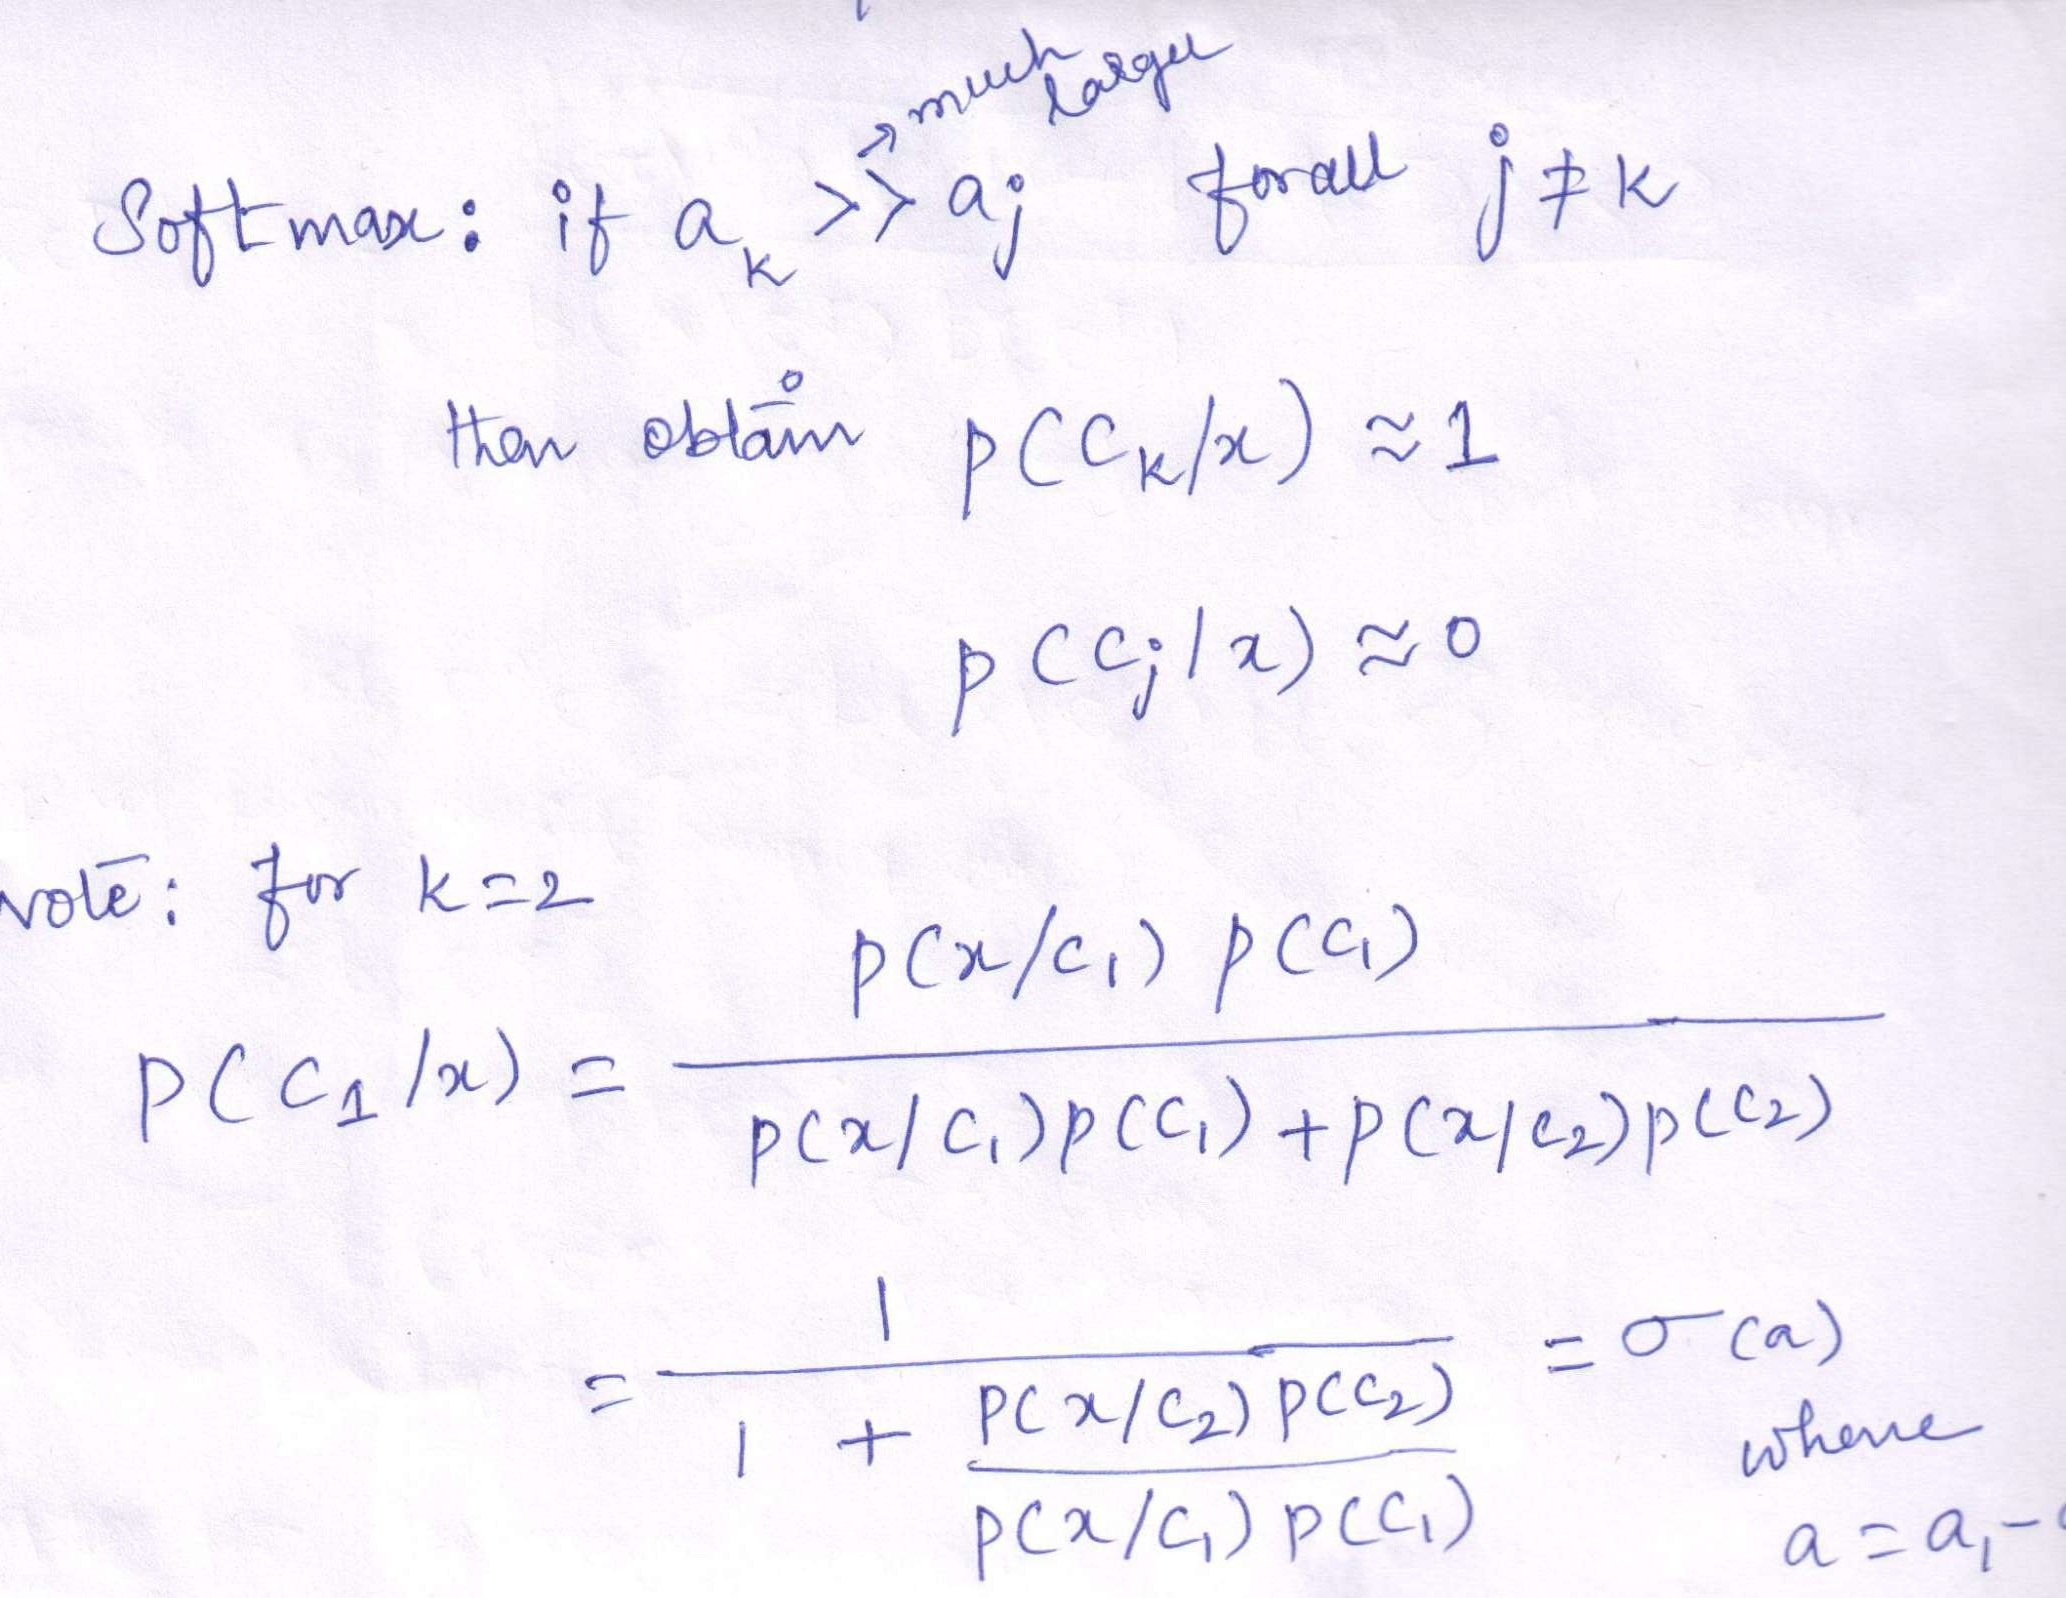 much
larger
Softmax: if a_k >> a_j for all j ≠ k
then obtain p(C_k/x) ≈ 1
p(C_j/x) ≈ 0
Note: for k=2
p(x/C_1) p(C_1)
P(C_1/x) = ―――――――――
p(x/C_1)p(C_1) + p(x/C_2)p(C_2)
1
= ――――――――― = σ(a)
1 + p(x/C_2) p(C_2)
where
p(x/C_1) p(C_1)
a = a_1 -